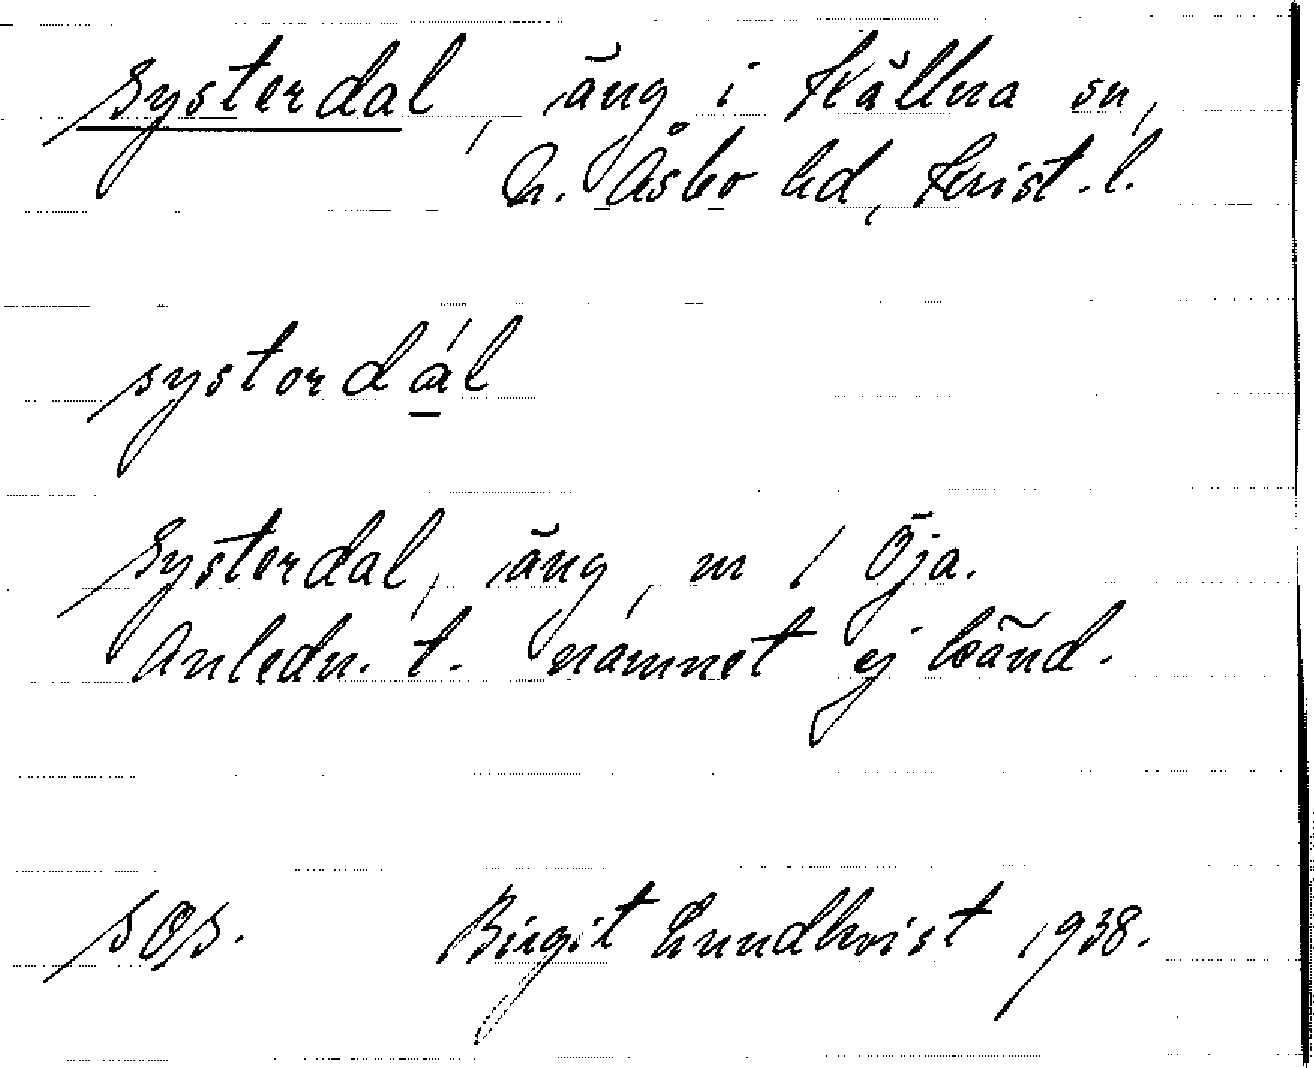 Systerdal, äng i Källna sn,
N. Åsbo hd, Krist. l.
systordál
Systerdal, äng, m / Öja.
Anledn. t. namnet ej känd.
SOS. Birgit Lundkvist 1938.